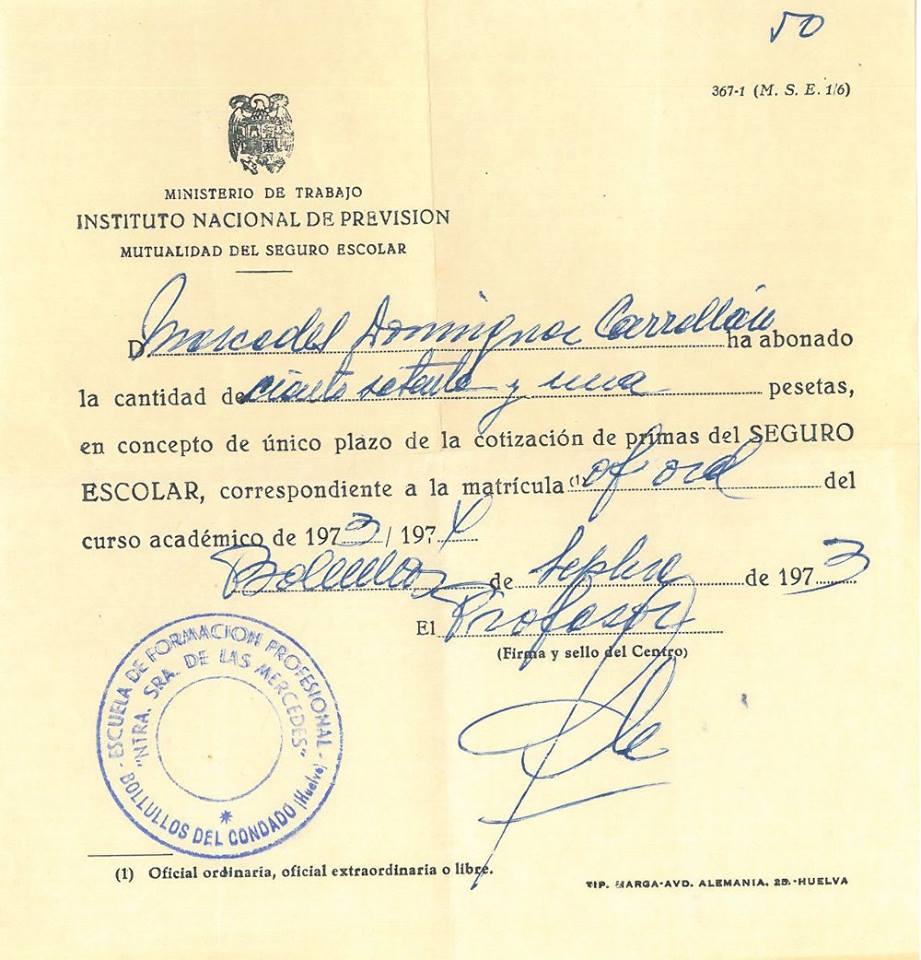 50
367-1 (M. S. E. 1/6)
MINISTERIO DE TRABAJO
INSTITUTO NACIONAL DE PREVISION
MUTUALIDAD DEL SEGURO ESCOLAR
D Mercedes Dominguez Carrellán ha abonado
la cantidad de ciento setenta y una pesetas,
en concepto de único plazo de la cotización de primas del SEGURO
ESCOLAR, correspondiente a la matrícula (1) of ord del
curso académico de 1973 / 1974
Bollullos de Sepbre de 1973
El Profesor
(Firma y sello del Centro)
- ESCUELA DE FORMACION PROFESIONAL -
"NTRA. SRA. DE LAS MERCEDES"
BOLLULLOS DEL CONDADO (Huelva)
(1) Oficial ordinaria, oficial extraordinaria o libre.
TIP. MARGA-AVD. ALEMANIA, 25.-HUELVA